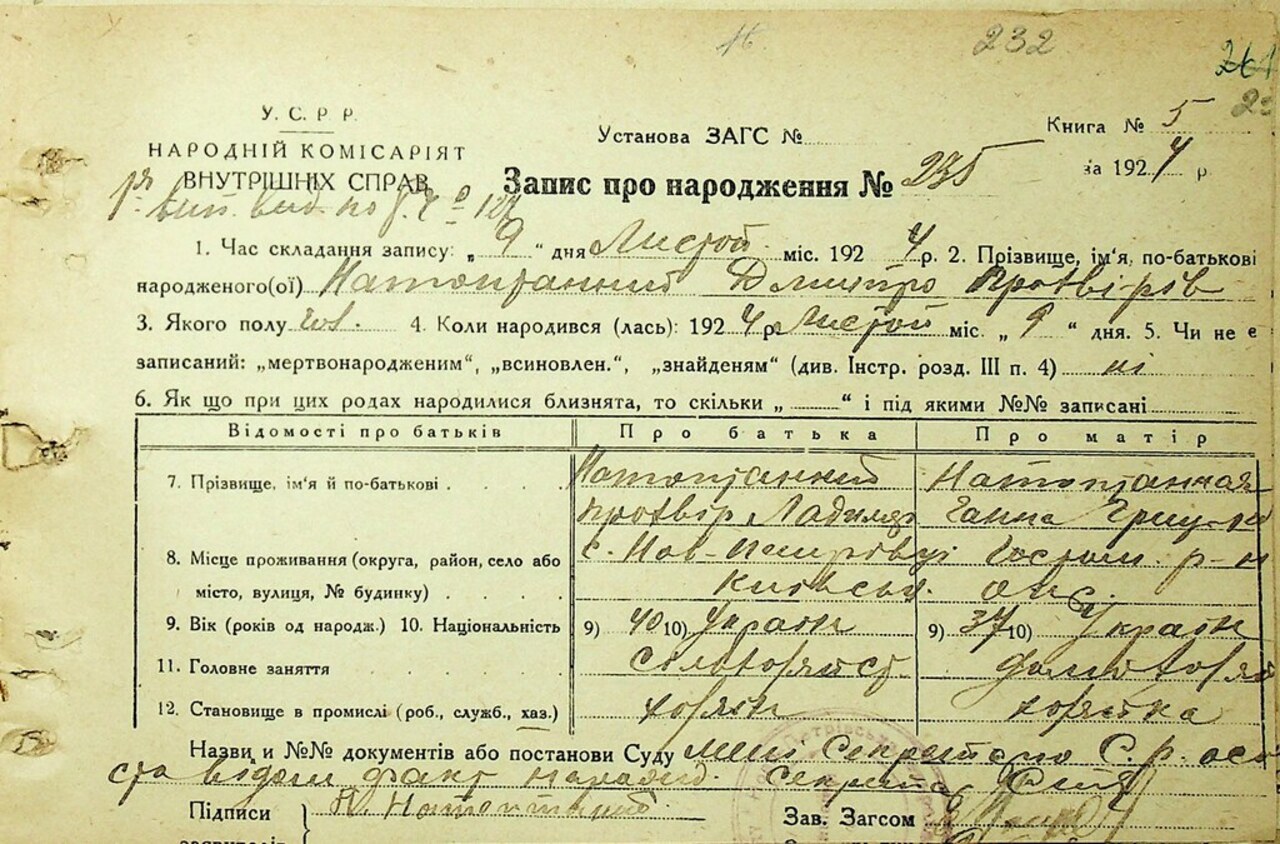 16
232
261
У. С. Р. Р.
НАРОДНІЙ КОМІСАРІЯТ
ВНУТРІШНІХ СПРАВ
Установа ЗАГС №
Книга № 5
за 1924 р
Запис про народження № 235
1. Час складання запису: „ 9 “ дня Листоп. міс. 192 4 р. 2. Прізвище, ім'я, по-батькові
народженого(ої) Натоптанний Дмитро
3. Якого полу чол. 4. Коли народився (лась): 192 4 р. Листоп міс. „ 9 “ дня. 5. Чи не є
записаний: „мертвонародженим“, „всиновлен.“, „знайденям“ (див. Інстр. розд. III п. 4) ні
6. Як що при цих родах народилися близнята, то скільки „ “ і під якими №№ записані
Відомості про батьків Про батька Про матір
7. Прізвище, ім'я й по-батькові Натоптанний Натоптанная
Ганна
8. Місце проживання (округа, район, село або с. Нов-Петрівці Гостом. р-н
місто, вулиця, № будинку) Київськ. окр.
9. Вік (років од народж.) 10. Національність 9) 40 10) Україн 9) 37 10) Україн
11. Головне заняття
12. Становище в промислі (роб., служб., хаз.) хозяїн хозяйка
Назви и №№ документів або постанови Суду мені секретарю С. р. осо
сто відом факт народж. секретар
Підписи Н. Натоптаний Зав. Загсом